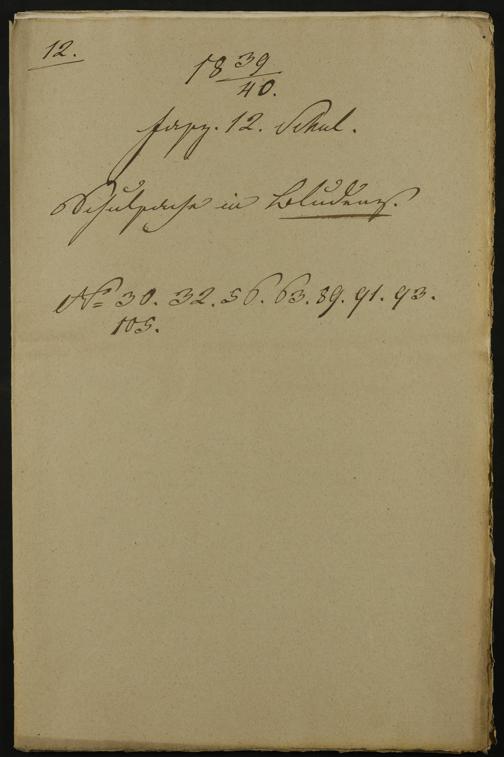 12.
18 39/40.
Fasz. 12. Schul.
Schulsache in Bludenz.
No 30. 32. 56. 63. 89. 91. 93.
105.